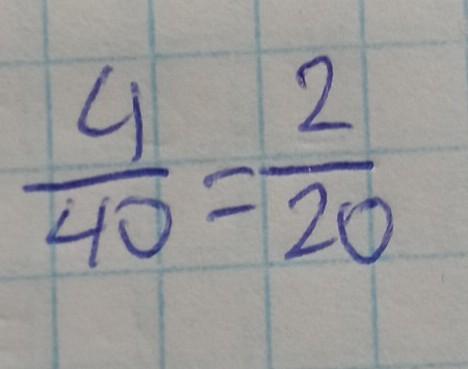 4/40 = 2/20